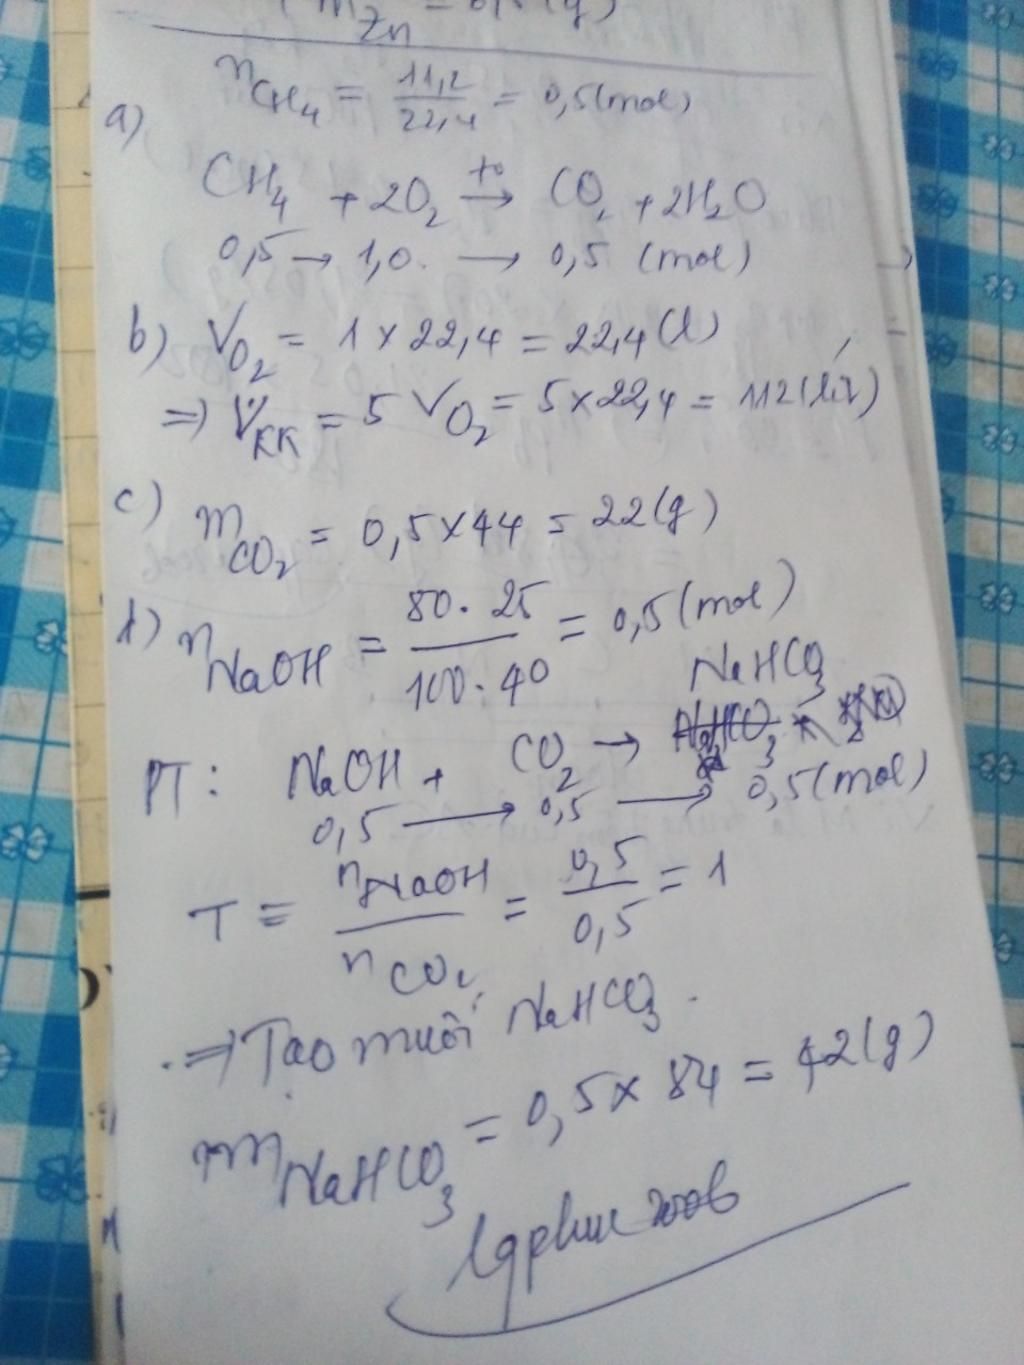 m Zn =
n CH4 = 11,2/22,4 = 0,5(mol)
a)
CH4 + 2O2 →(to) CO2 + 2H2O
0,5 → 1,0 → 0,5 (mol)
b) VO2 = 1 × 22,4 = 22,4(l)
=> VKK = 5 VO2 = 5×22,4 = 112(lít)
c) mCO2 = 0,5×44 = 22(g)
d) nNaOH = 80.25/100.40 = 0,5(mol)
NaHCO3
PT: NaOH + CO2 →
0,5 → 0,5 → 0,5(mol)
T = nNaOH/nCO2 = 0,5/0,5 = 1
=> Tạo muối NaHCO3.
mNaHCO3 = 0,5×84 = 42(g)